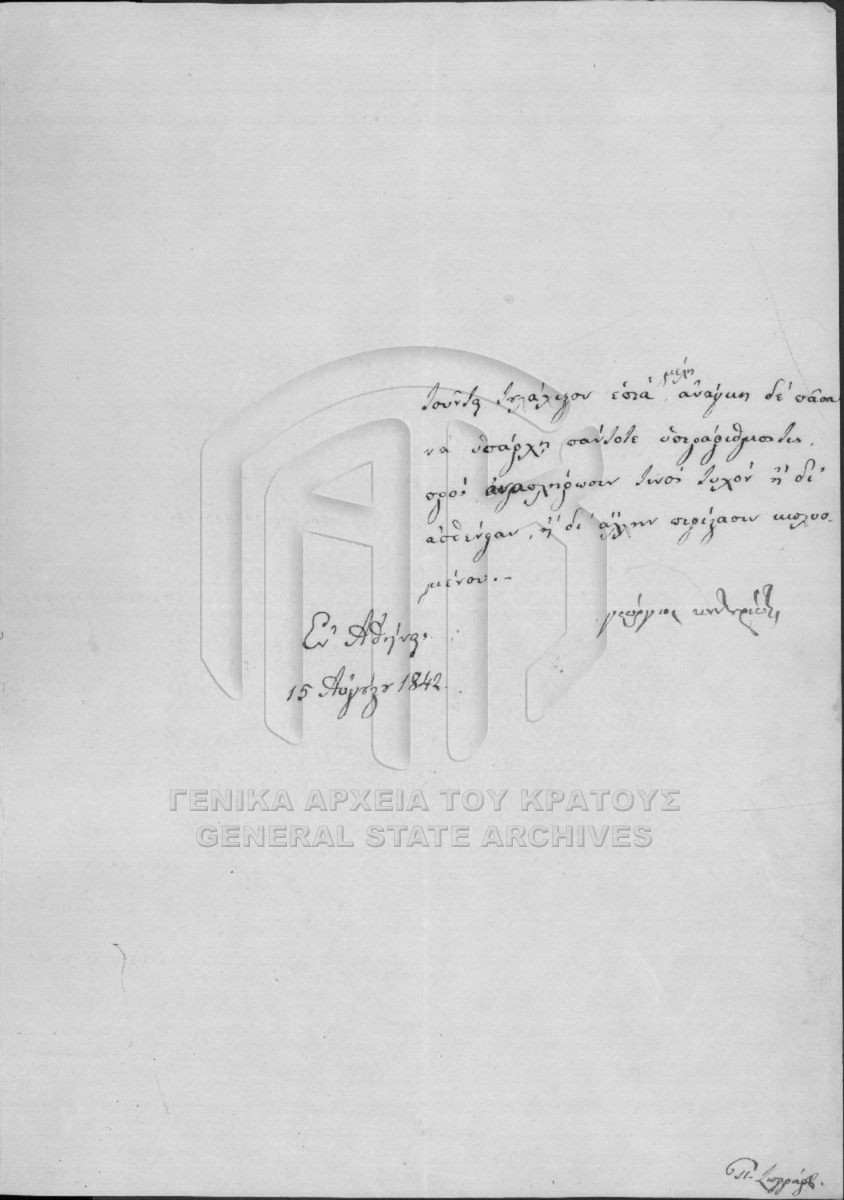 τοῦντα τουλάχιστον ἑπτὰ μέλη, ἀνάγκη δὲ πᾶσα
νὰ ὑπάρχῃ πάντοτε ὑπεράριθμός τις,
πρὸς ἀναπλήρωσιν τινὸς τυχὸν ἢ δι'
ἀσθένειαν, ἢ δι' ἄλλην περίστασιν κωλυο-
μένου.-
Γεώργιος
Ἐν Ἀθήναις
15 Αὐγούστου 1842.
ΓΕΝΙΚΑ ΑΡΧΕΙΑ ΤΟΥ ΚΡΑΤΟΥΣ
GENERAL STATE ARCHIVES